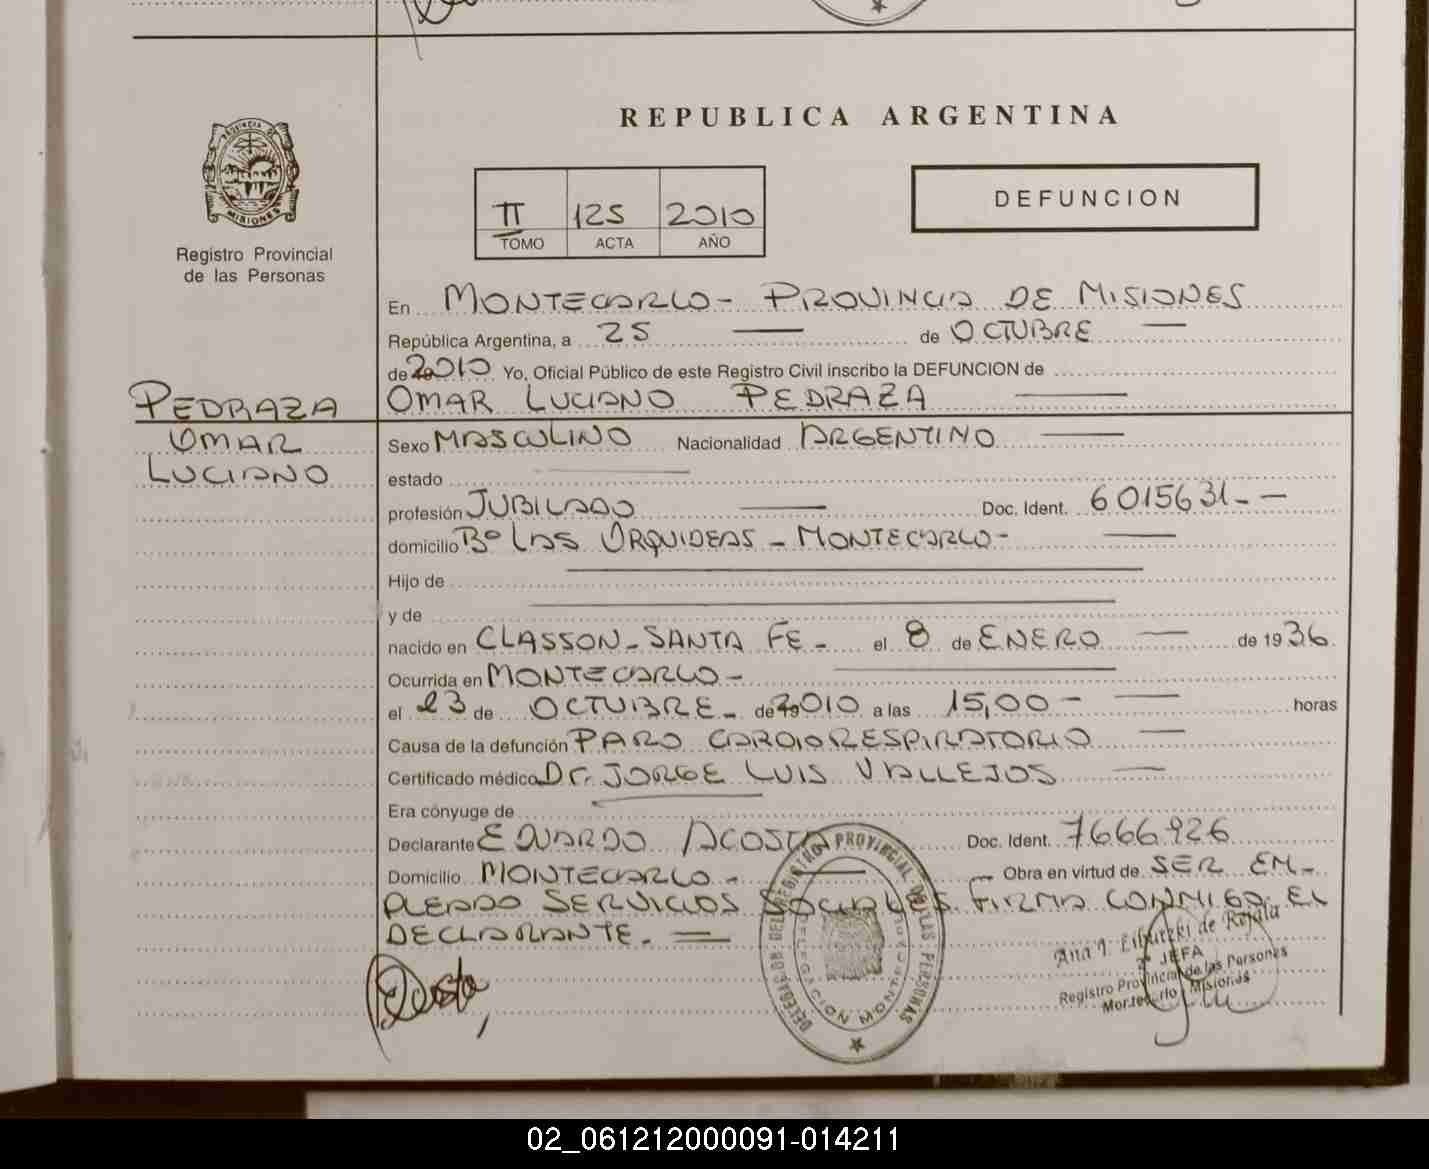 REPUBLICA ARGENTINA
PROVINCIA DE MISIONES
Registro Provincial
de las Personas
II 125 2010
TOMO ACTA AÑO
DEFUNCION
En MONTECARLO - PROVINCIA DE MISIONES
República Argentina, a 25 — de OCTUBRE —
de 2010 Yo, Oficial Público de este Registro Civil inscribo la DEFUNCION de
OMAR LUCIANO PEDRAZA —
PEDRAZA
OMAR
LUCIANO
Sexo MASCULINO Nacionalidad ARGENTINO —
estado —
profesión JUBILADO — Doc. Ident. 6015631 - —
domicilio Bº LAS ORQUIDEAS - MONTECARLO - —
Hijo de —
y de —
nacido en CLASSON - SANTA FE - el 8 de ENERO — de 1936
Ocurrida en MONTECARLO - —
el 23 de OCTUBRE - de 2010 a las 15,00 - — horas
Causa de la defunción PARO CARDIORESPIRATORIO —
Certificado médico Dr. JORGE LUIS VALLEJOS —
Era cónyuge de —
Declarante EDUARDO ACOSTA Doc. Ident. 7666926
Domicilio MONTECARLO - — Obra en virtud de SER EM-
PLEADO SERVICIOS SOCIALES FIRMA CONMIGO EL
DECLARANTE. —
Acosta
DELEGACION DEL REGISTRO PROVINCIAL DE LAS PERSONAS
DELEGACION MONTECARLO
Ana I. de
JEFA
Registro Provincial de las Personas
Montecarlo Misiones
02_061212000091-014211